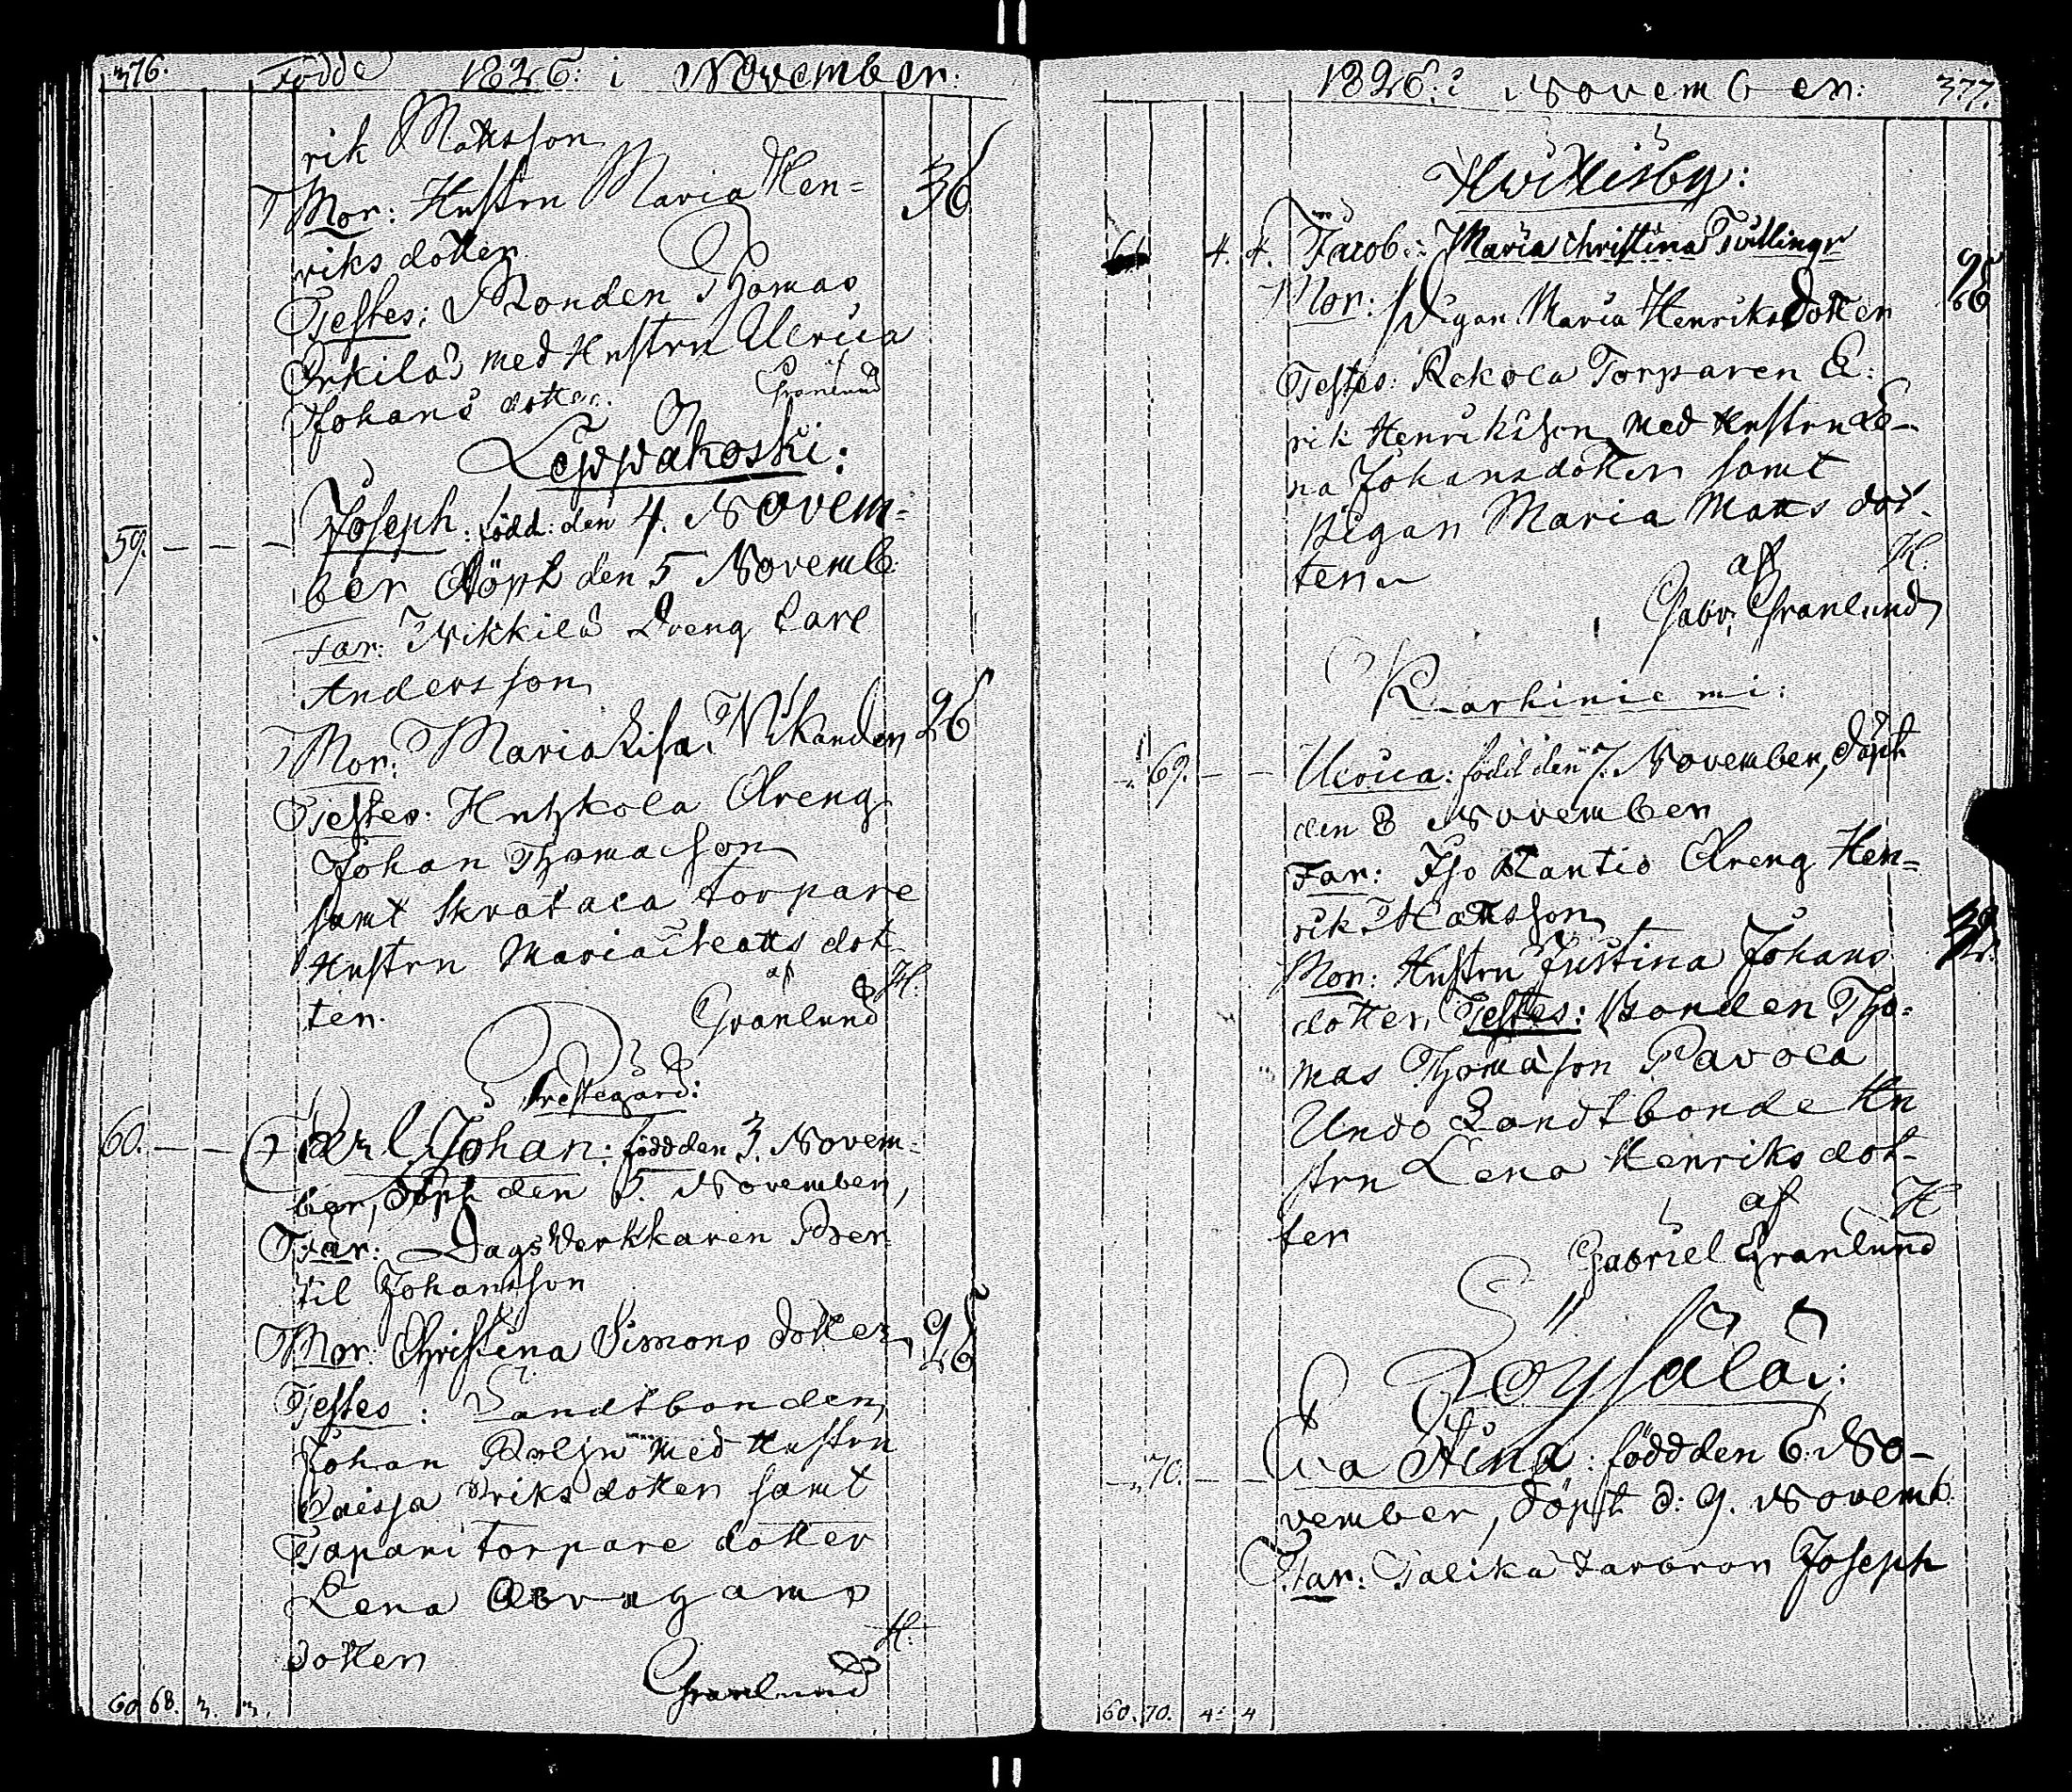 376. Födde 1826: i November.
rik Mattsson
Mor: Hustru Maria Hen=
36
riks dotter
Testes: Bonden Thomas
Orkila med Hustru Ulrica
Johans dotter. Granlund
Lewwäkoski:
59. Joseph: född: den 4. Novem=
ber Döpt den 5 Novemb.
Far: Nikkilä Dreng Carl
Andersson
Mor: Maria Lisa Vikander 26
Testes: Dreng
Johan Thomasson
samt torpare
Hustru Maria Matts dot
ter. af H.
Granlund
Prestegård:
60. Carl Johan: född den 3. Novem-
ber, Döpt den 5. November,
Far: Dags Verkkaren Ber
til Johansson
Mor: Christina Simons dotter 26
Testes: Landtbonden
Johan med Hustru
Caissa Eriks dotter samt
Tapani torpare dotter
Lena Abragams
dotter H.
Granlund
60 68. 3. 3.
1826: i November: 377.
Huittisby:
61 4. 4. Jacob: Maria Christina Tvillingr
Mor: Pigan Maria Henriks Dotter 26
Testes: Rekola Torparen E:
rik Henriksson med Hustru Le-
na Johansdotter samt
Pigan Maria Matts dot-
ter af H.
Gabr: Granlund
Karhiniemi:
69. Ulrica: född den 7. November, döpt
den 8 November
Far: Iso Rantio Dreng Hen=
rik Mattsson
Mor: Hustru Justina Johans 32.
dotter, Testes: Bonden Tho-
mas Thomasson Pavola
Undo Landtbonde Hu
stru Lena Henriks dot-
ter af H
Gabriel Granlund
Löysälä:
70. Eva Stina: född den 6. No-
vember, döpt d: 9. Novemb.
Far: Talikka Joseph
60. 70. 4: 4